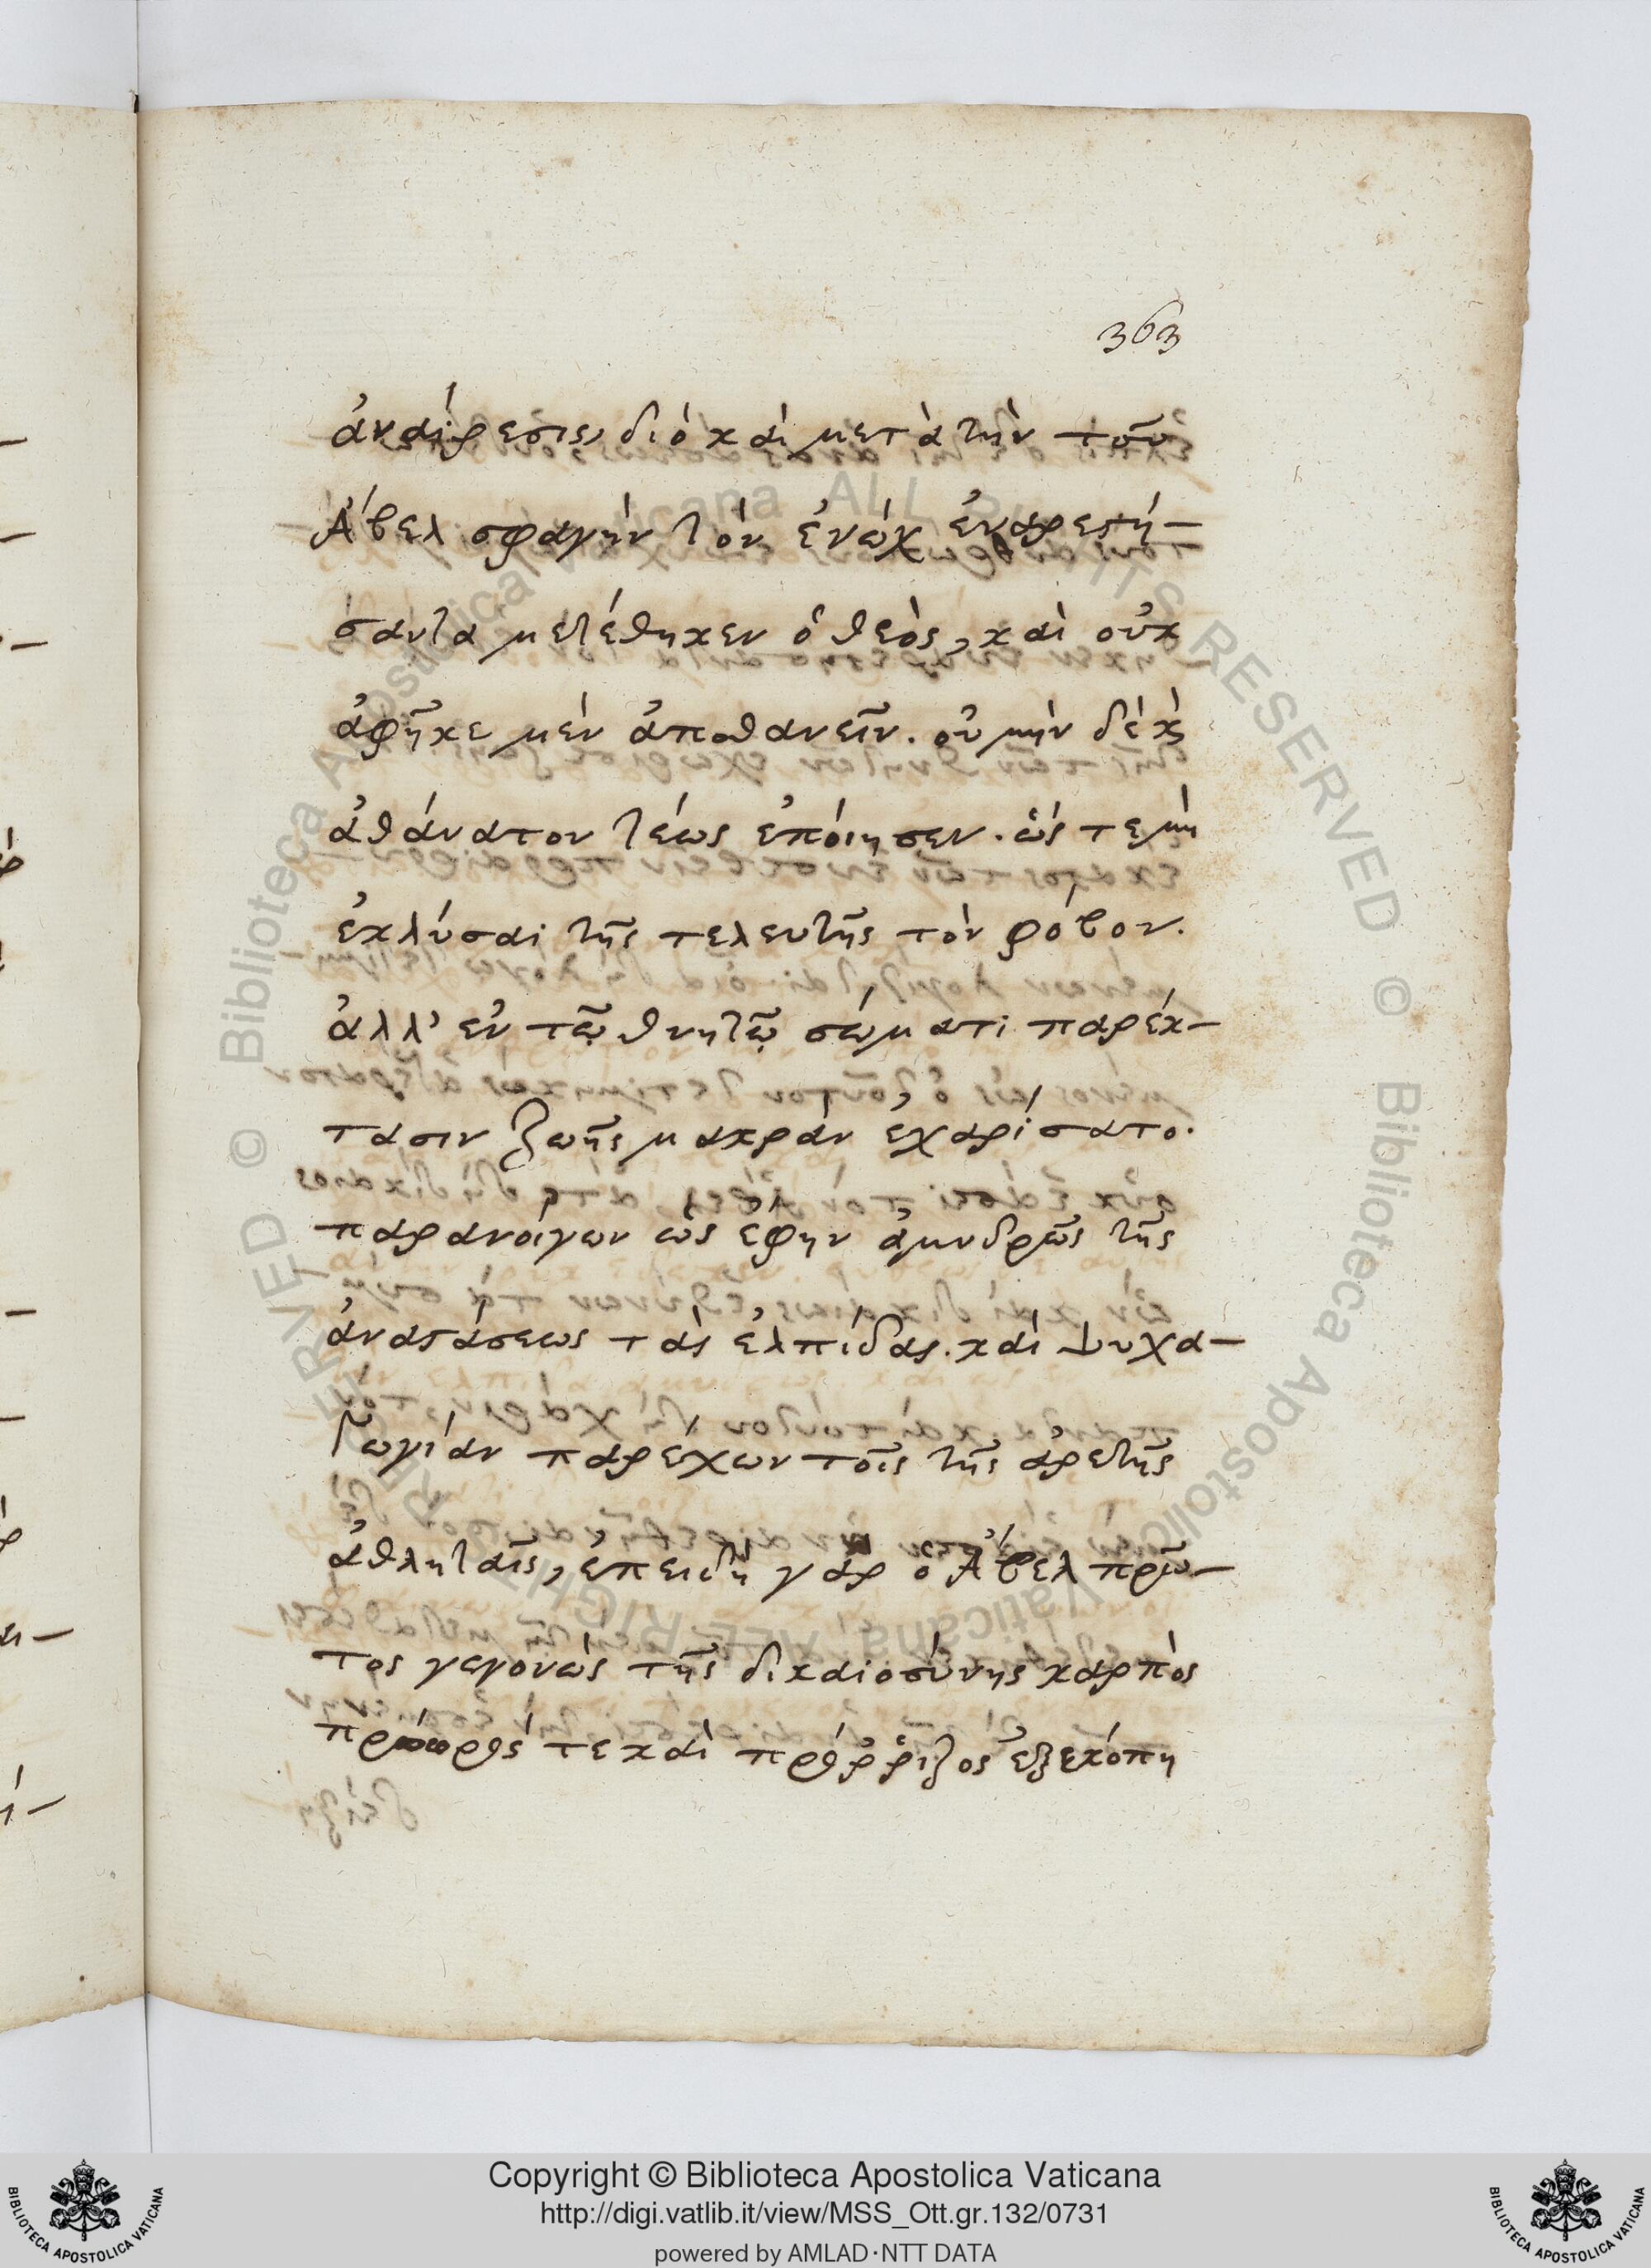 363
ἀναίρεσιν, διὸ καὶ μετὰ τὴν τοῦ
Ἄβελ σφαγὴν τὸν ἐνώχ εὐαρεστή-
σαντα μετέθηκεν ὁ θεὸς, καὶ οὐκ
ἀφῆκε μὲν ἀποθανεῖν. οὐ μὴν δὲ κ
ἀθάνατον τέως ἐποίησεν. ὥς τε μὴ
ἐκλύσαι τῆς τελευτῆς τὸν φόβον.
ἀλλ' ἐν τῷ θνητῷ σώματι παρέκ-
τασιν ζωῆς μακρὰν ἐχαρίσατο.
παρανοίγων ὡς ἔφην ἀμυδρῶς τῆς
ἀναστάσεως τὰς ἐλπίδας. καὶ ψυχα-
γωγίαν παρέχων τοῖς τῆς ἀρετῆς
ἀθληταῖς, ἐπειδὴ γὰρ ὁ Ἄβελ πρῶ-
τος γεγονὼς τῆς δικαιοσύνης καρπὸς
πρόωρός τε καὶ πρόρριζος ἐξεκόπη
Copyright © Biblioteca Apostolica Vaticana
http://digi.vatlib.it/view/MSS_Ott.gr.132/0731
powered by AMLAD·NTT DATA
BIBLIOTECA APOSTOLICA VATICANA
BIBLIOTECA APOSTOLICA VATICANA
© Biblioteca Apostolica Vaticana ALL RIGHTS RESERVED
© Biblioteca Apostolica Vaticana ALL RIGHTS RESERVED